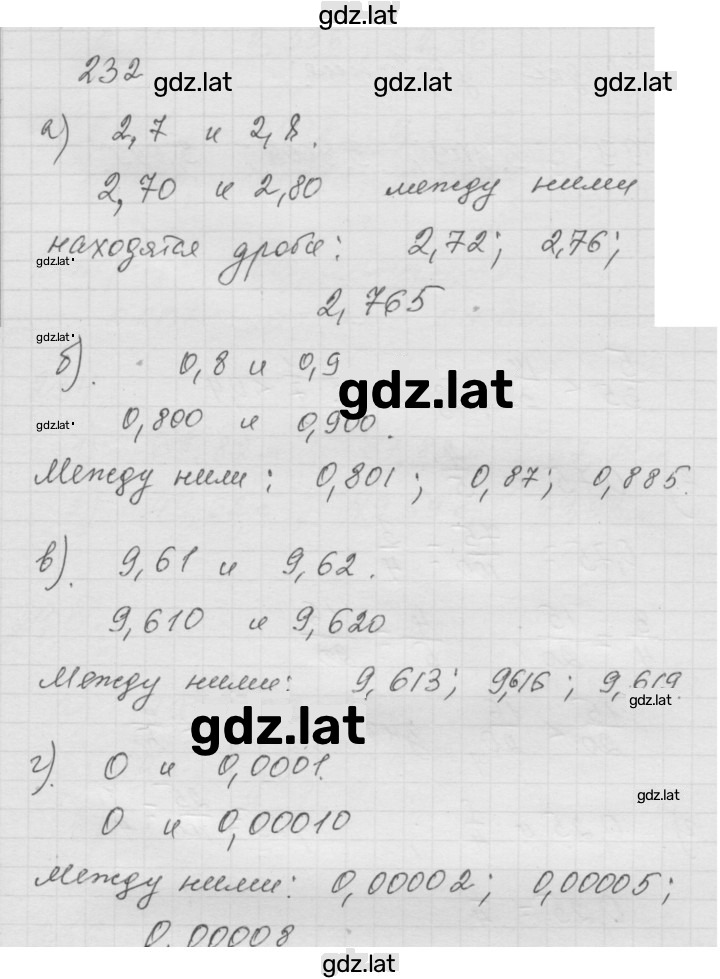 gdz.lat
232
gdz.lat gdz.lat gdz.lat
а) 2,7 и 2,8.
2,70 и 2,80 между ними
находятся дроби: 2,72; 2,76;
gdz.lat
2,765.
gdz.lat
б). 0,8 и 0,9
gdz.lat
0,800 и 0,900.
gdz.lat
Между ними: 0,801; 0,87; 0,885.
в). 9,61 и 9,62.
9,610 и 9,620
Между ними: 9,613; 9,616; 9,619.
gdz.lat
gdz.lat
г). 0 и 0,0001.
gdz.lat
0 и 0,00010
между ними: 0,00002; 0,00005;
0,00008
gdz.lat